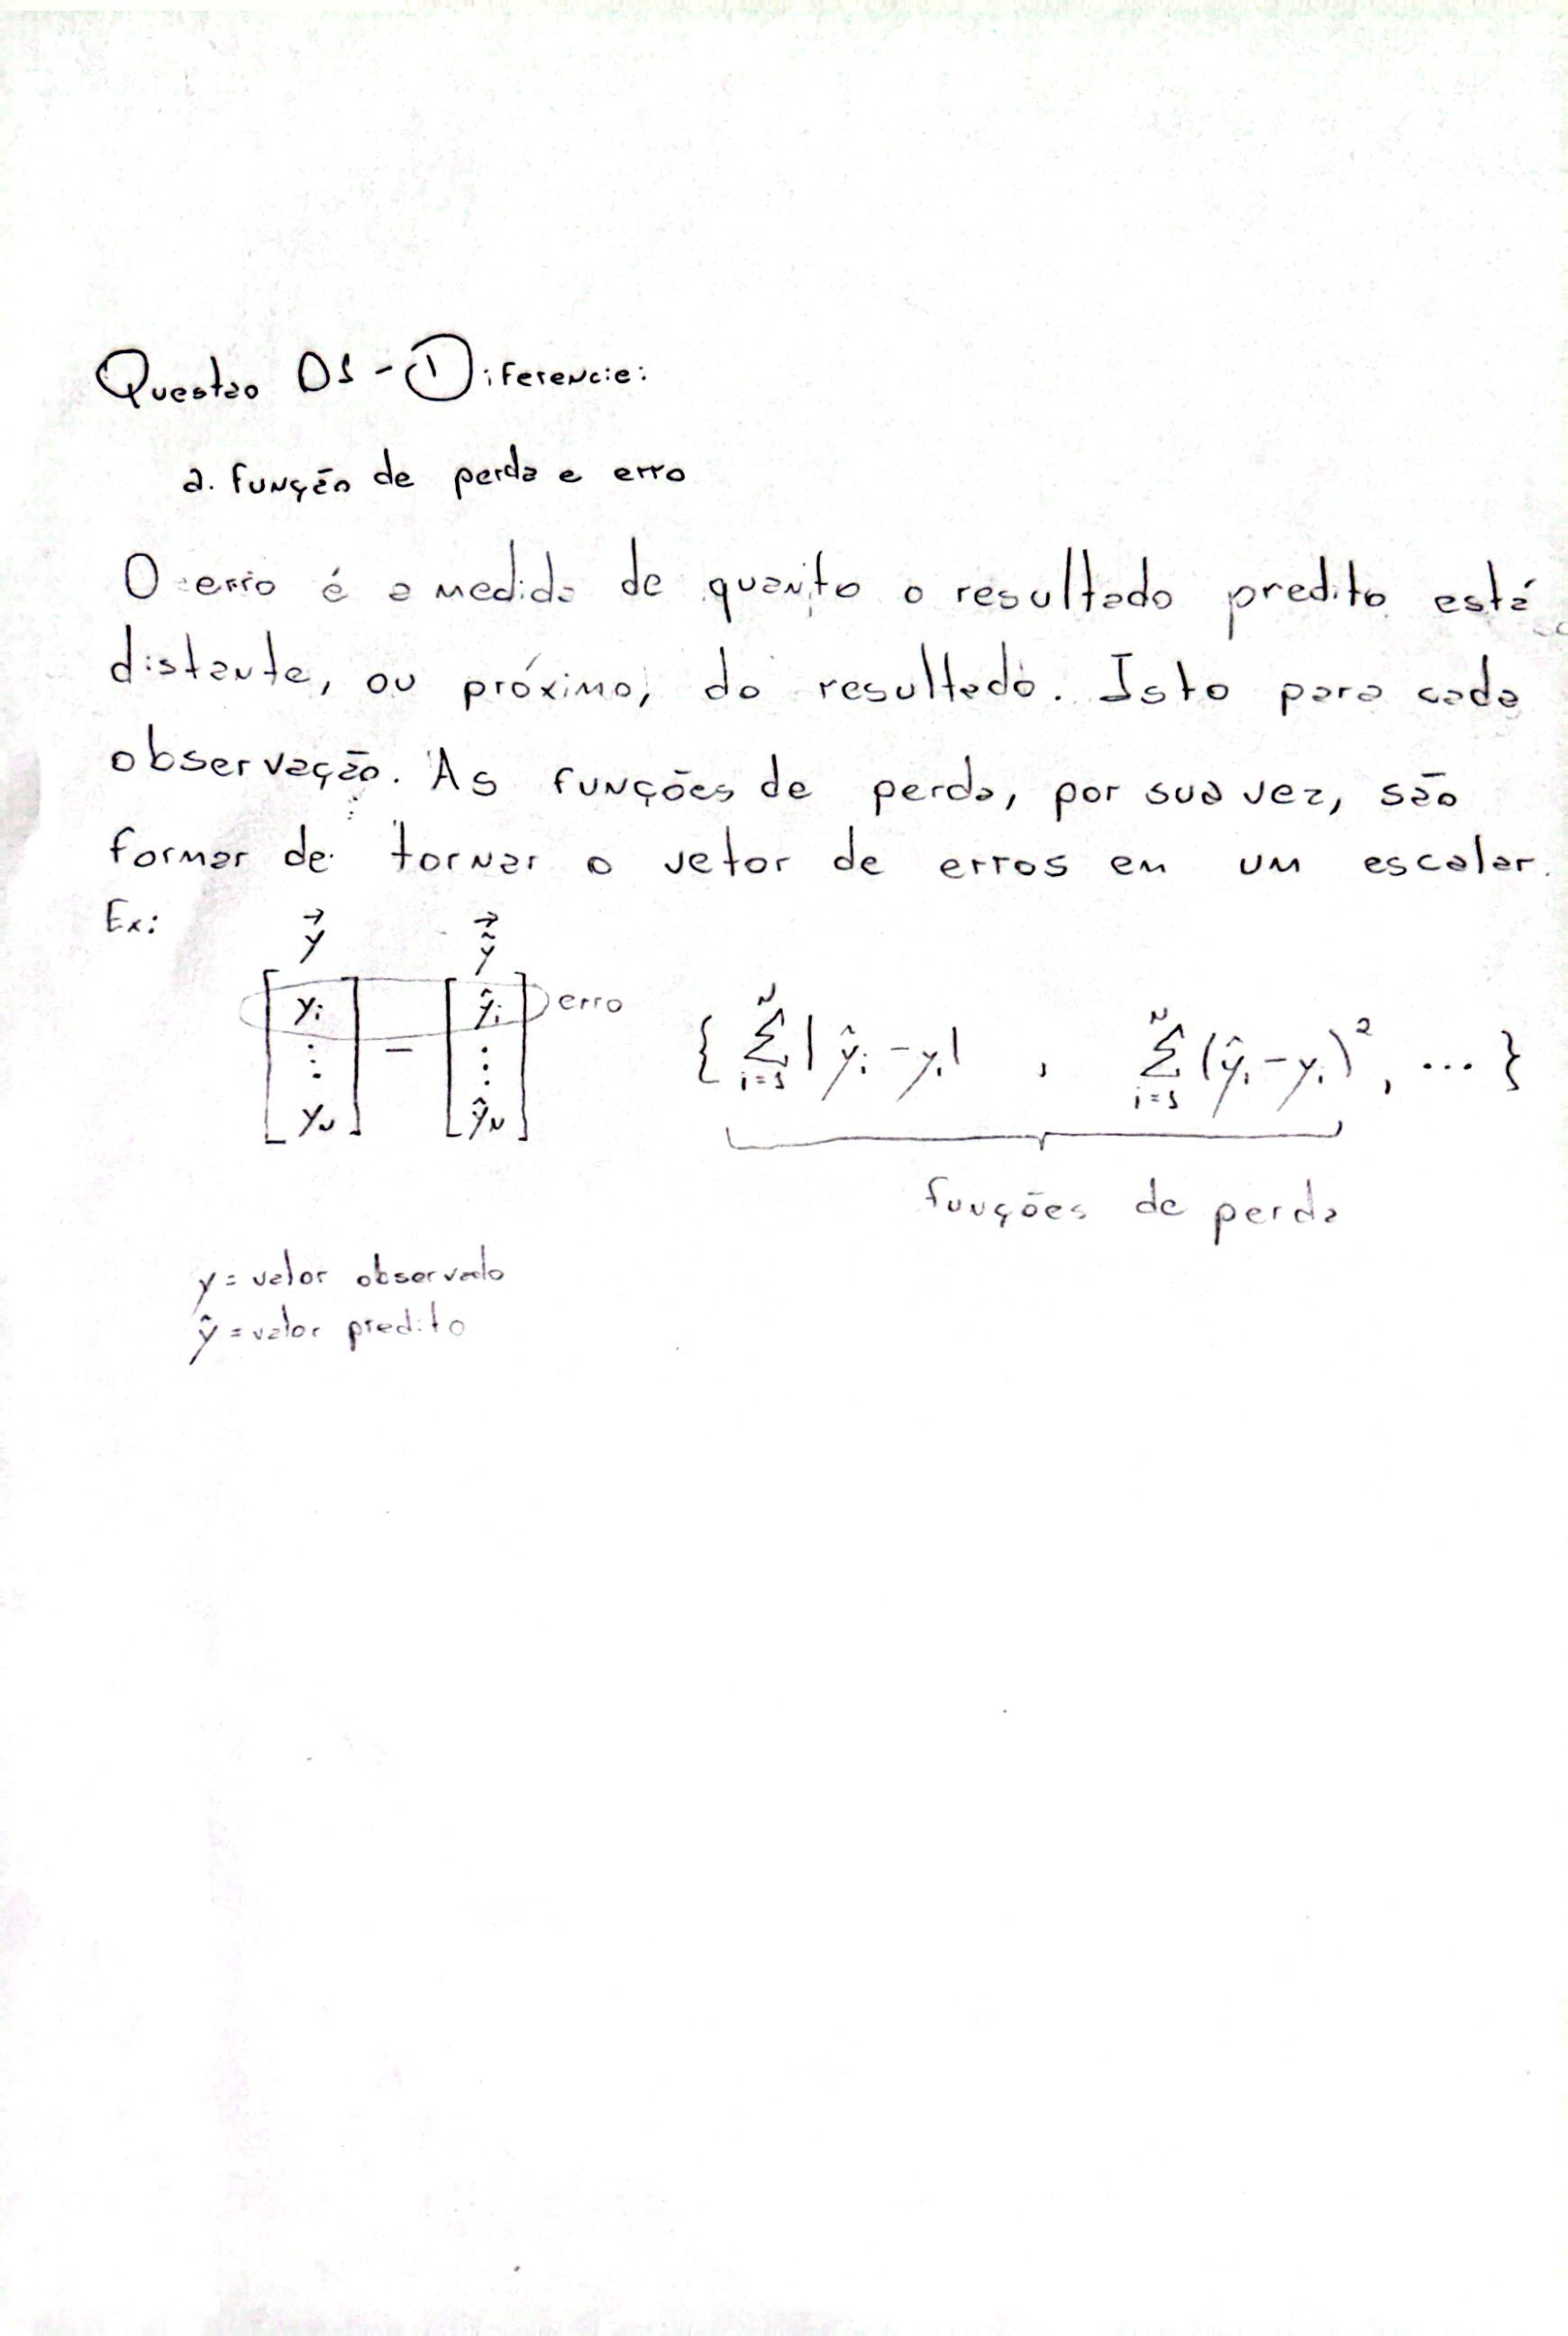 Questão 01 - Diferencie:
a. função de perda e erro
O erro é a medida de quanto o resultado predito está
distante, ou próximo, do resultado. Isto para cada
observação. As funções de perda, por sua vez, são
formar de tornar o vetor de erros em um escalar.
Ex:
y⃗ ỹ⃗
[ yᵢ ⋮ y_N ] − [ ŷᵢ ⋮ ŷ_N ] erro { Σᵢ₌₁ᴺ |ŷᵢ − yᵢ| , Σᵢ₌₁ᴺ (ŷᵢ − yᵢ)², ... }
funções de perda
y = valor observado
ŷ = valor predito